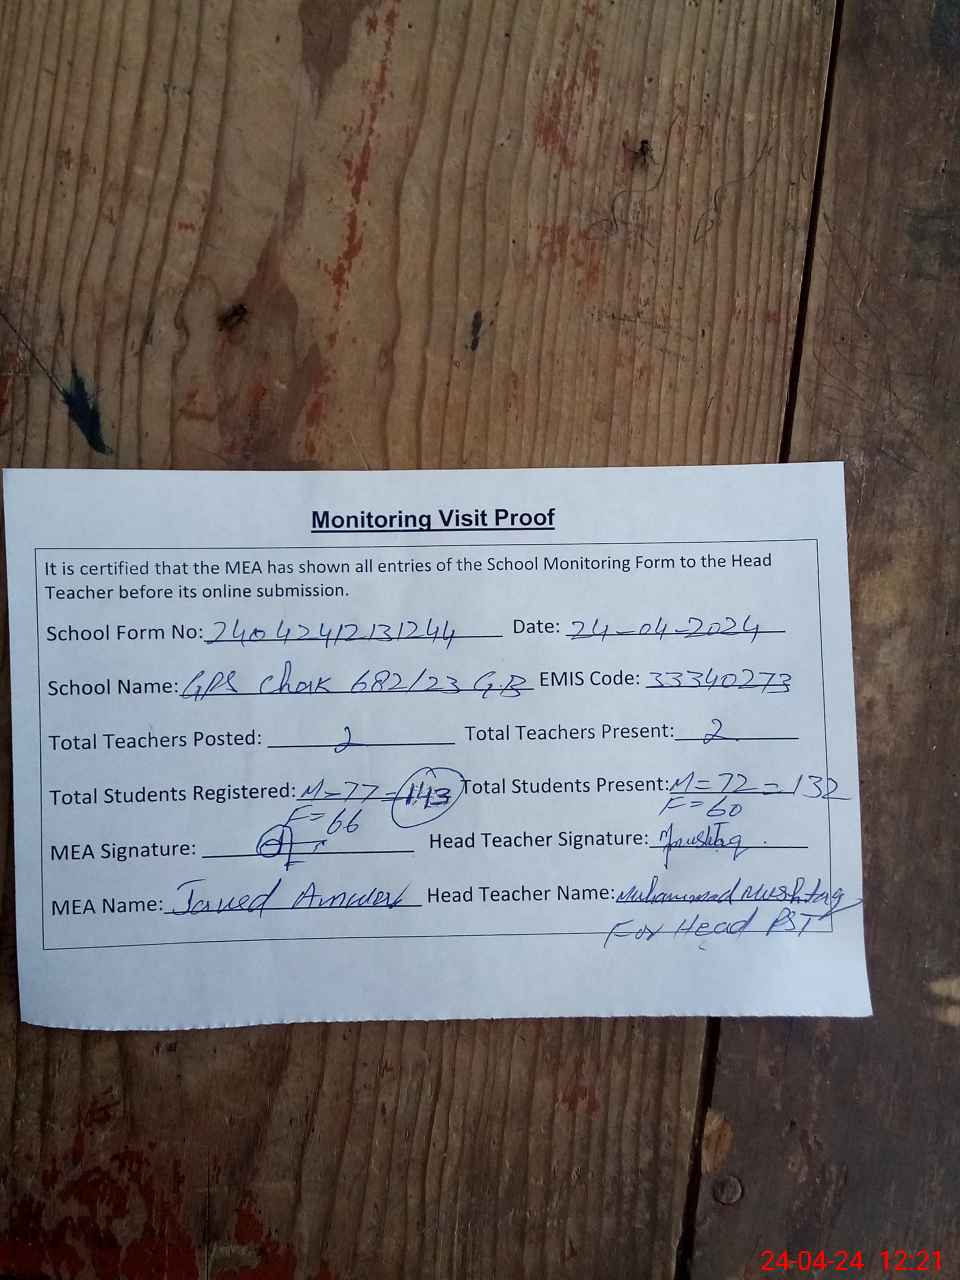 Monitoring Visit Proof
It is certified that the MEA has shown all entries of the School Monitoring Form to the Head
Teacher before its online submission.
School Form No: 24042412131244 Date: 24-04-2024
School Name: GPS Chak 682/23 G.B EMIS Code: 33340273
Total Teachers Posted: 2 Total Teachers Present: 2
Total Students Registered: M=77 = 143 Total Students Present: M=72 = 132
F=66 F=60
MEA Signature: Head Teacher Signature: Mushtaq
MEA Name: Javed Anwer Head Teacher Name: Muhammad Mushtaq
For Head PST
24-04-24 12:21